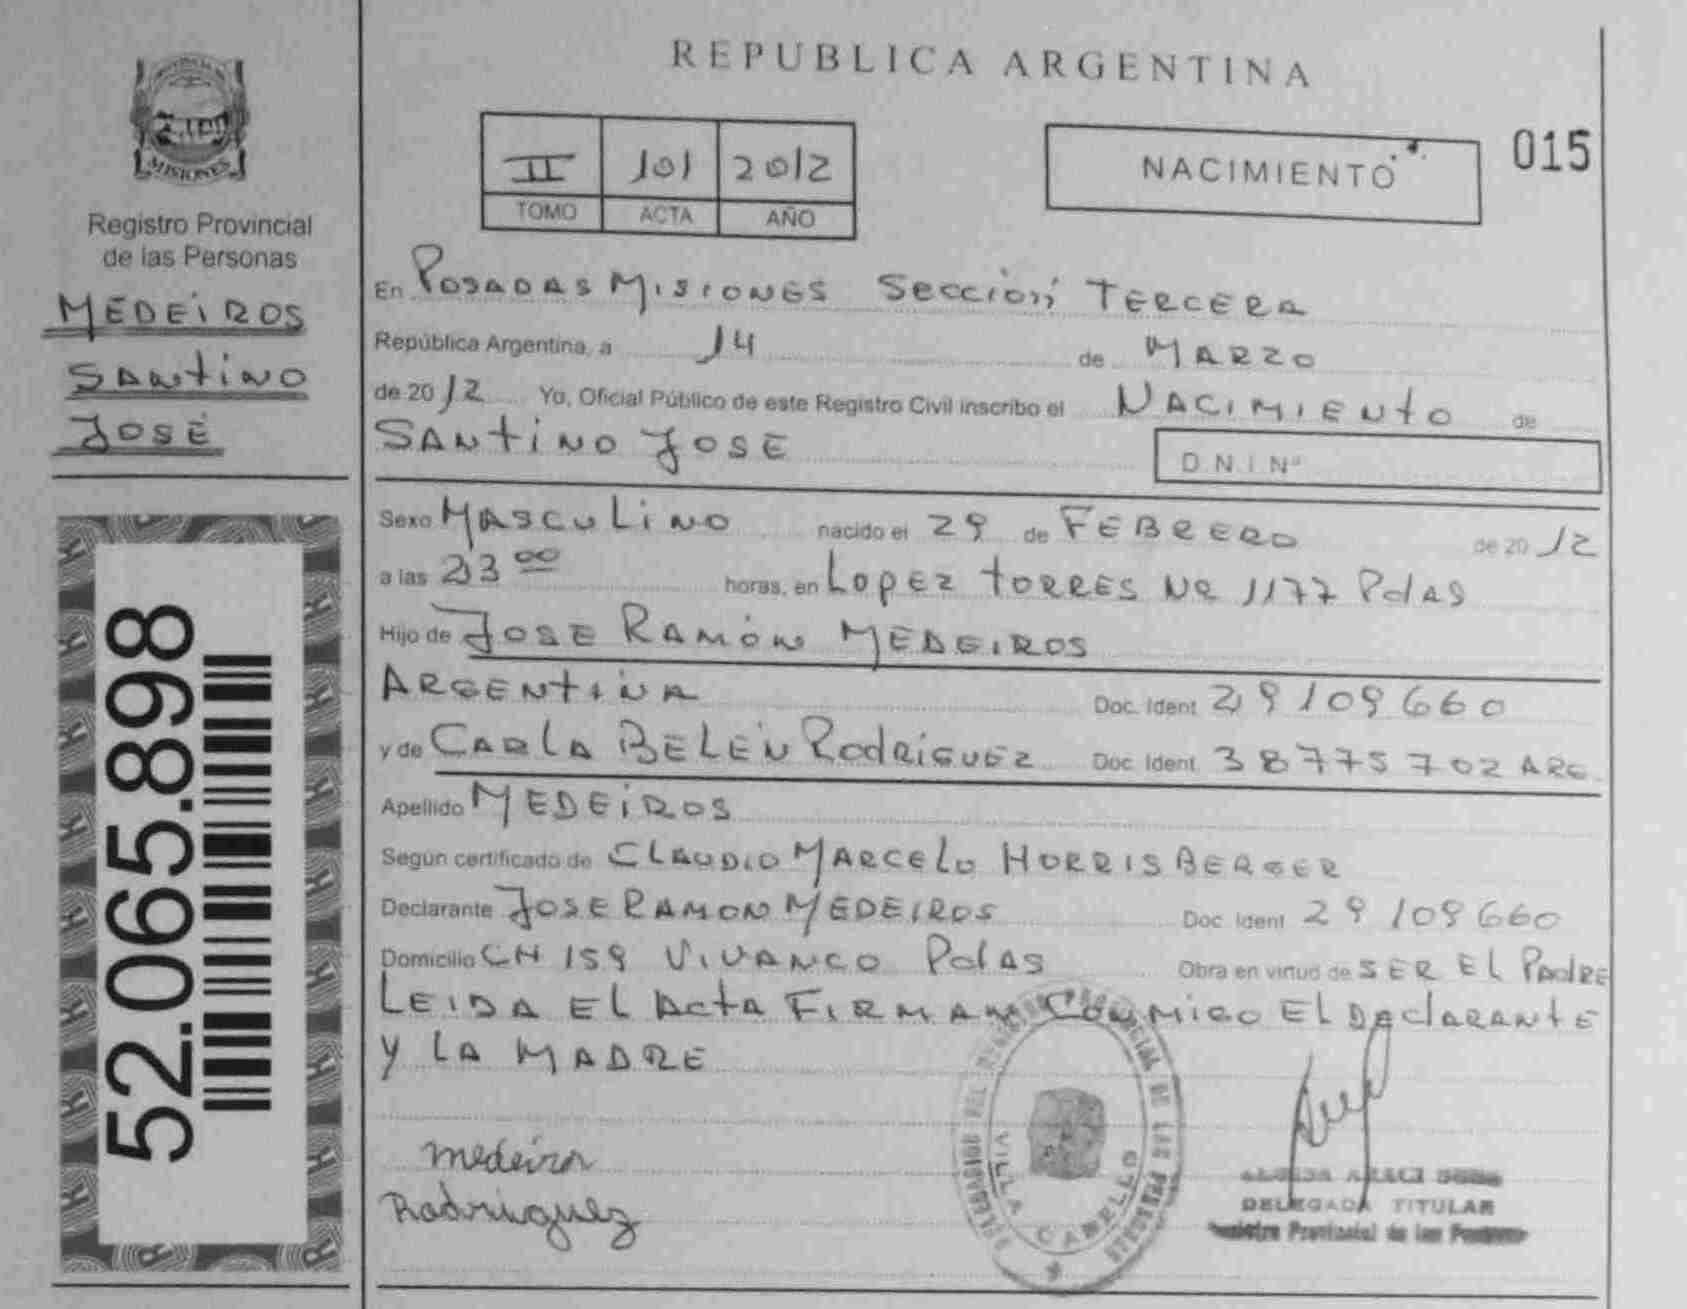 MISIONES
Registro Provincial
de las Personas
MEDEIROS
SANTINO
JOSÉ
52.065.898
REPUBLICA ARGENTINA
II 101 2012
TOMO ACTA AÑO
NACIMIENTO
015
En POSADAS MISIONES Sección TERCERA
República Argentina, a 14 de MARZO
de 2012 Yo, Oficial Público de este Registro Civil inscribo el NACIMIENTO de
SANTINO JOSE
D.N.I.Nº
Sexo MASCULINO nacido el 29 de FEBRERO de 2012
a las 23 00 horas, en LOPEZ TORRES Nº 1177 PdAS
Hijo de JOSE RAMÓN MEDEIROS
ARGENTINA Doc. Ident 29109660
y de CARLA BELÉN RODRIGUEZ Doc. Ident 38775702 ARG.
Apellido MEDEIROS
Según certificado de CLAUDIO MARCELO HORRISBERGER
Declarante JOSE RAMON MEDEIROS Doc. Ident 29109660
Domicilio CH 159 VIVANCO PdAS Obra en virtud de SER EL PADRE
LEIDA EL ACTA FIRMAN CONMIGO EL DECLARANTE
Y LA MADRE
VILLA CABELLO
medeiros
Rodriguez
DELEGADA TITULAR
Registro Provincial de las Personas